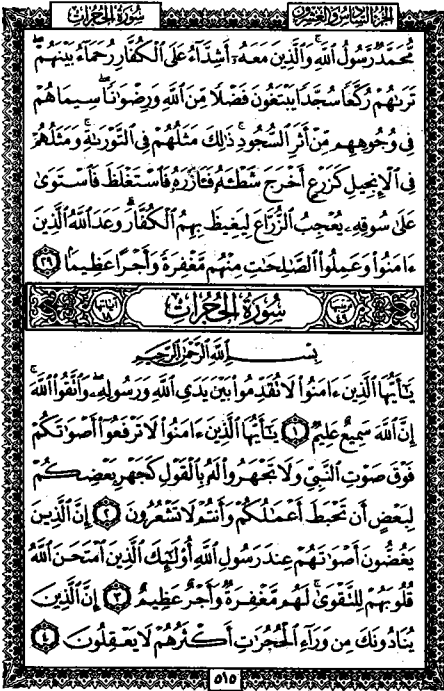 سُورَةُ الحُجُرَاتِ
الجزء السادس والعشرون
مُّحَمَّدٌ رَّسُولُ ٱللَّهِ ۚ وَٱلَّذِينَ مَعَهُۥٓ أَشِدَّآءُ عَلَى ٱلْكُفَّارِ رُحَمَآءُ بَيْنَهُمْ ۖ
تَرَىٰهُمْ رُكَّعًا سُجَّدًا يَبْتَغُونَ فَضْلًا مِّنَ ٱللَّهِ وَرِضْوَٰنًا ۖ سِيمَاهُمْ
فِى وُجُوهِهِم مِّنْ أَثَرِ ٱلسُّجُودِ ۚ ذَٰلِكَ مَثَلُهُمْ فِى ٱلتَّوْرَىٰةِ ۚ وَمَثَلُهُمْ
فِى ٱلْإِنجِيلِ كَزَرْعٍ أَخْرَجَ شَطْـَٔهُۥ فَـَٔازَرَهُۥ فَٱسْتَغْلَظَ فَٱسْتَوَىٰ
عَلَىٰ سُوقِهِۦ يُعْجِبُ ٱلزُّرَّاعَ لِيَغِيظَ بِهِمُ ٱلْكُفَّارَ ۗ وَعَدَ ٱللَّهُ ٱلَّذِينَ
ءَامَنُوا۟ وَعَمِلُوا۟ ٱلصَّـٰلِحَـٰتِ مِنْهُم مَّغْفِرَةً وَأَجْرًا عَظِيمًۢا ٢٩
سُورَةُ الحُجُرَاتِ
بِسْمِ ٱللَّهِ ٱلرَّحْمَـٰنِ ٱلرَّحِيمِ
يَـٰٓأَيُّهَا ٱلَّذِينَ ءَامَنُوا۟ لَا تُقَدِّمُوا۟ بَيْنَ يَدَىِ ٱللَّهِ وَرَسُولِهِۦ ۖ وَٱتَّقُوا۟ ٱللَّهَ ۚ
إِنَّ ٱللَّهَ سَمِيعٌ عَلِيمٌ ١ يَـٰٓأَيُّهَا ٱلَّذِينَ ءَامَنُوا۟ لَا تَرْفَعُوٓا۟ أَصْوَٰتَكُمْ
فَوْقَ صَوْتِ ٱلنَّبِىِّ وَلَا تَجْهَرُوا۟ لَهُۥ بِٱلْقَوْلِ كَجَهْرِ بَعْضِكُمْ
لِبَعْضٍ أَن تَحْبَطَ أَعْمَـٰلُكُمْ وَأَنتُمْ لَا تَشْعُرُونَ ٢ إِنَّ ٱلَّذِينَ
يَغُضُّونَ أَصْوَٰتَهُمْ عِندَ رَسُولِ ٱللَّهِ أُو۟لَـٰٓئِكَ ٱلَّذِينَ ٱمْتَحَنَ ٱللَّهُ
قُلُوبَهُمْ لِلتَّقْوَىٰ ۚ لَهُم مَّغْفِرَةٌ وَأَجْرٌ عَظِيمٌ ٣ إِنَّ ٱلَّذِينَ
يُنَادُونَكَ مِن وَرَآءِ ٱلْحُجُرَٰتِ أَكْثَرُهُمْ لَا يَعْقِلُونَ ٤
٥١٥